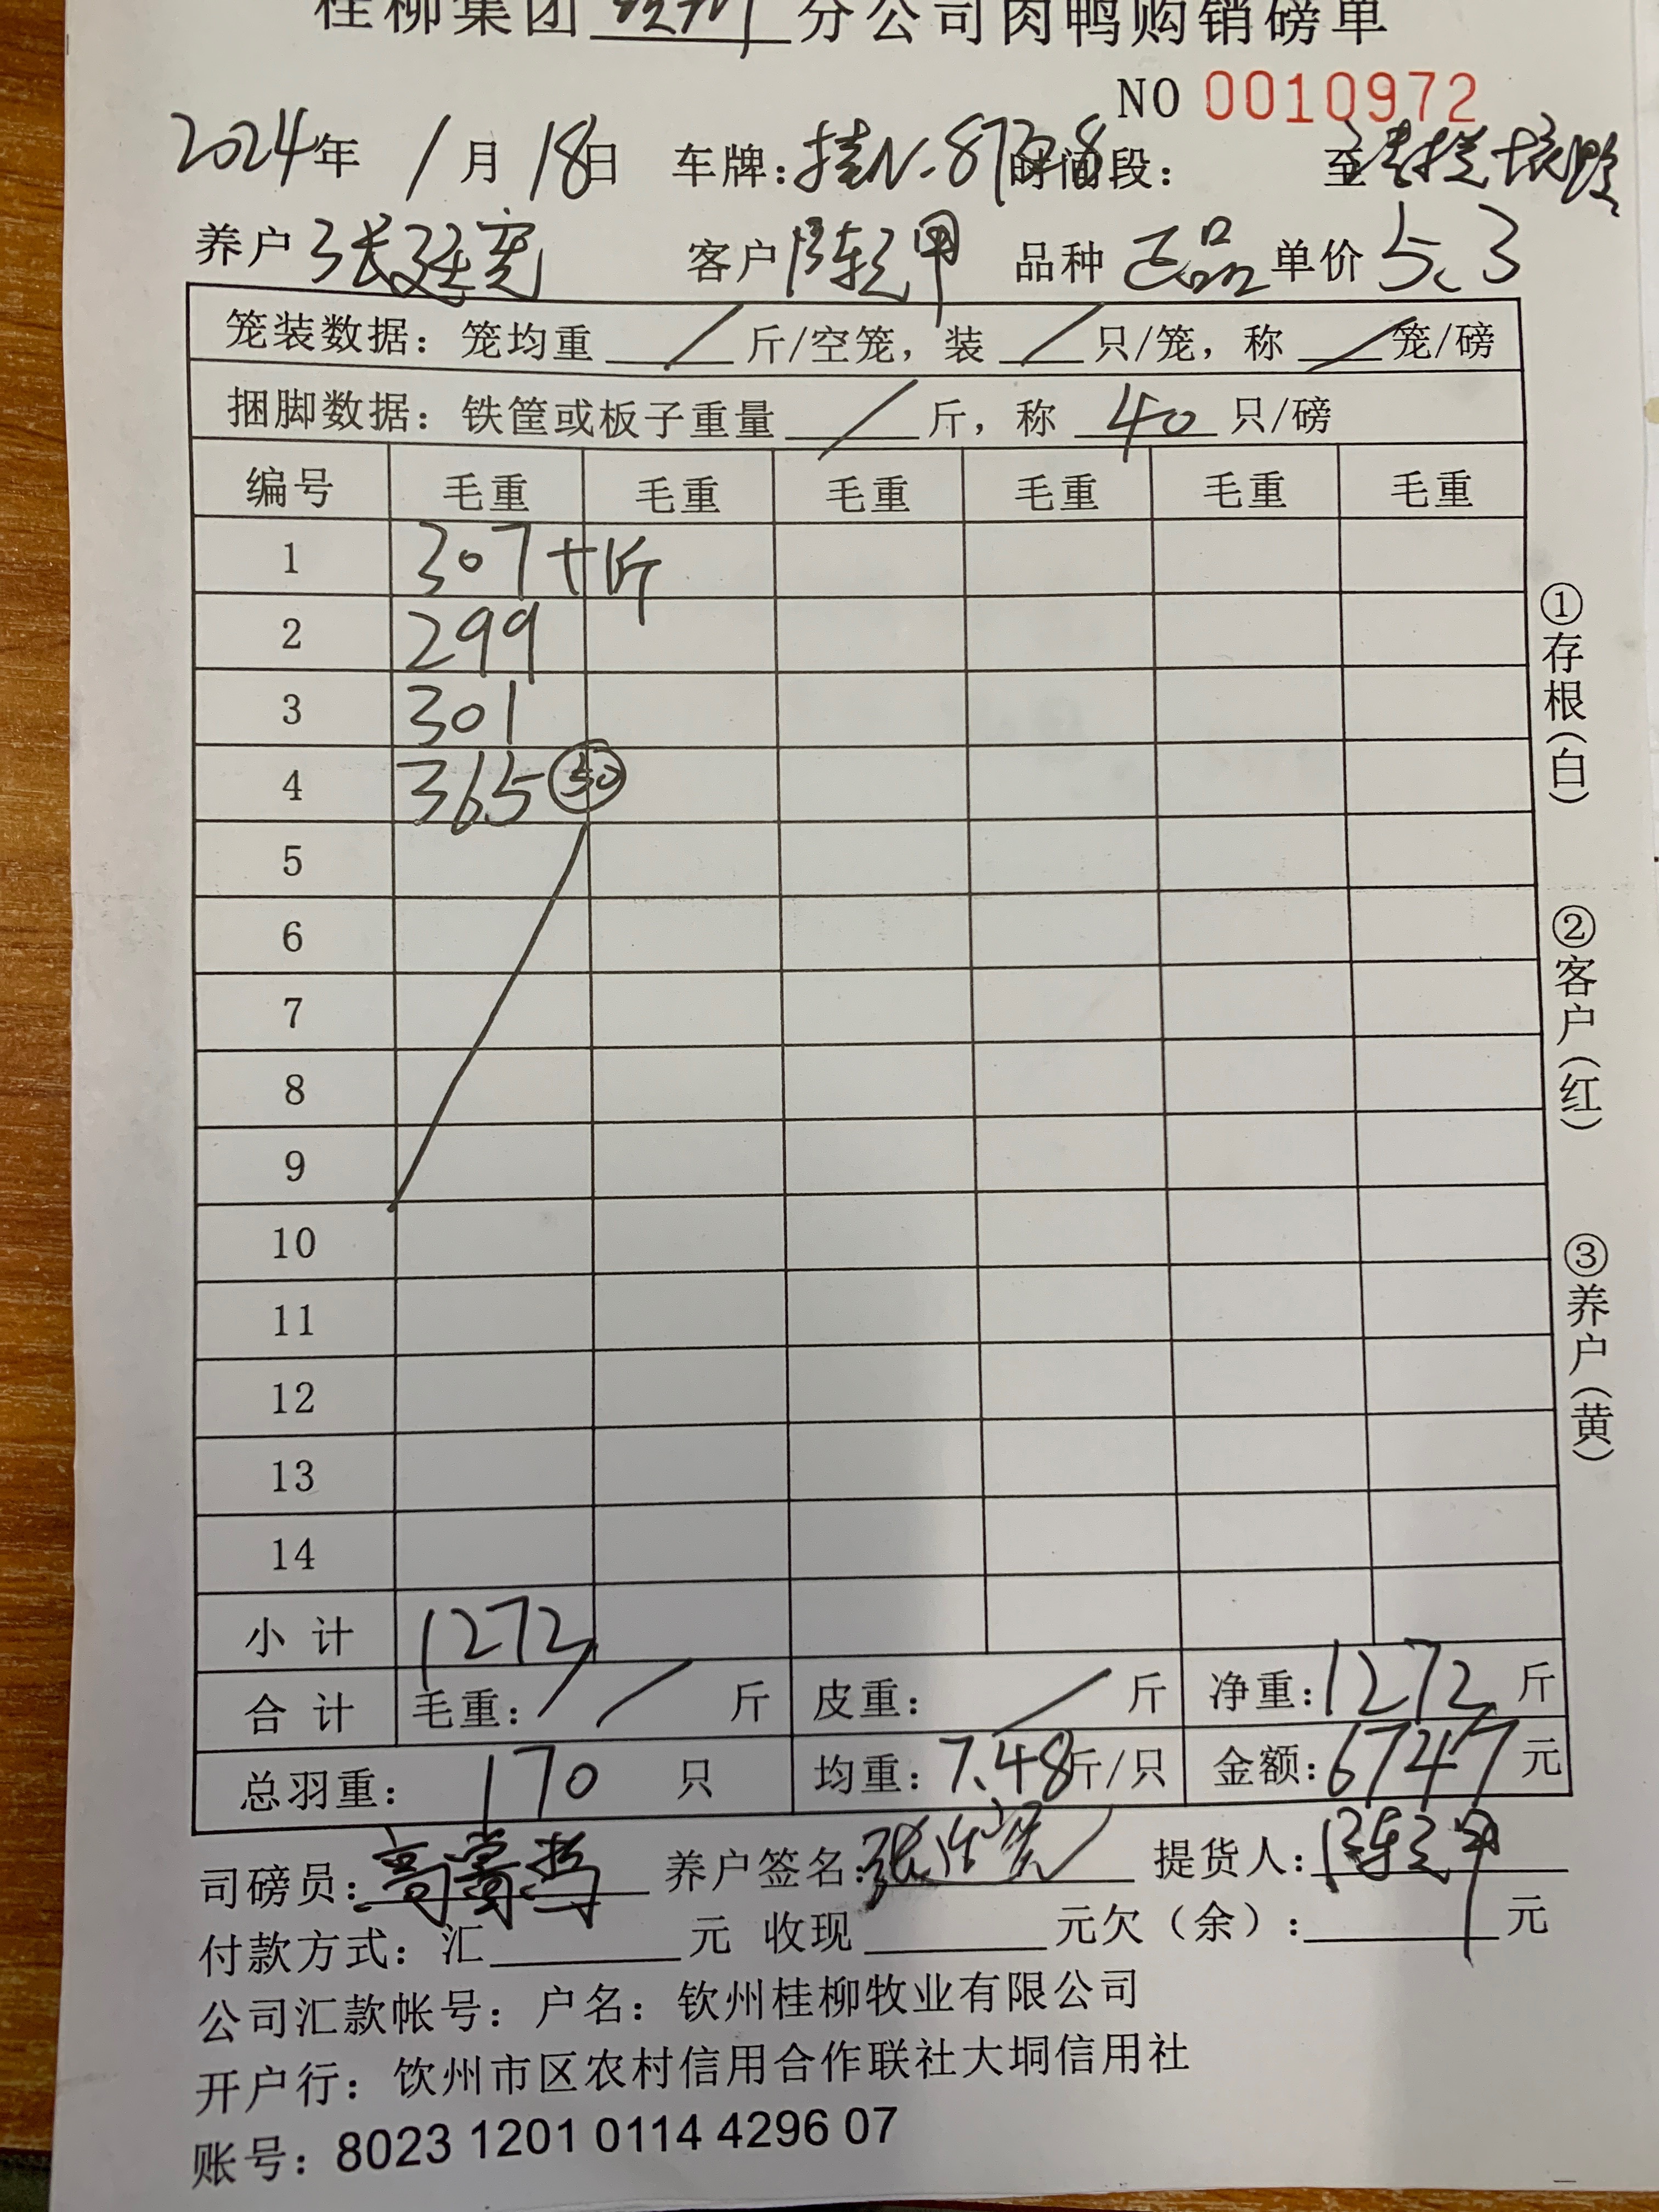 桂柳集团 钦州 分公司肉鸭购销磅单
NO 0010972
2024年 1月 18日 车牌: 桂N·87 时间段: 至
养户 张廷宽 客户 陈 甲 品种 正品 单价 5.3
笼装数据: 笼均重 / 斤/空笼, 装 / 只/笼, 称 / 笼/磅
捆脚数据: 铁筐或板子重量 / 斤, 称 40 只/磅
编号 毛重 毛重 毛重 毛重 毛重 毛重
1 307 十斤
2 299
3 301
4 365 50
5
6
7
8
9
10
11
12
13
14
小计 1272
合计 毛重: / 斤 皮重: / 斤 净重: 1272 斤
总羽重: 170 只 均重: 7.48 斤/只 金额: 6747 元
司磅员: 养户签名: 张 提货人: 陈 甲
付款方式: 汇 元 收现 元欠(余): 元
公司汇款帐号: 户名: 钦州桂柳牧业有限公司
开户行: 钦州市区农村信用合作联社大垌信用社
账号: 8023 1201 0114 4296 07
①存根(白)
②客户(红)
③养户(黄)